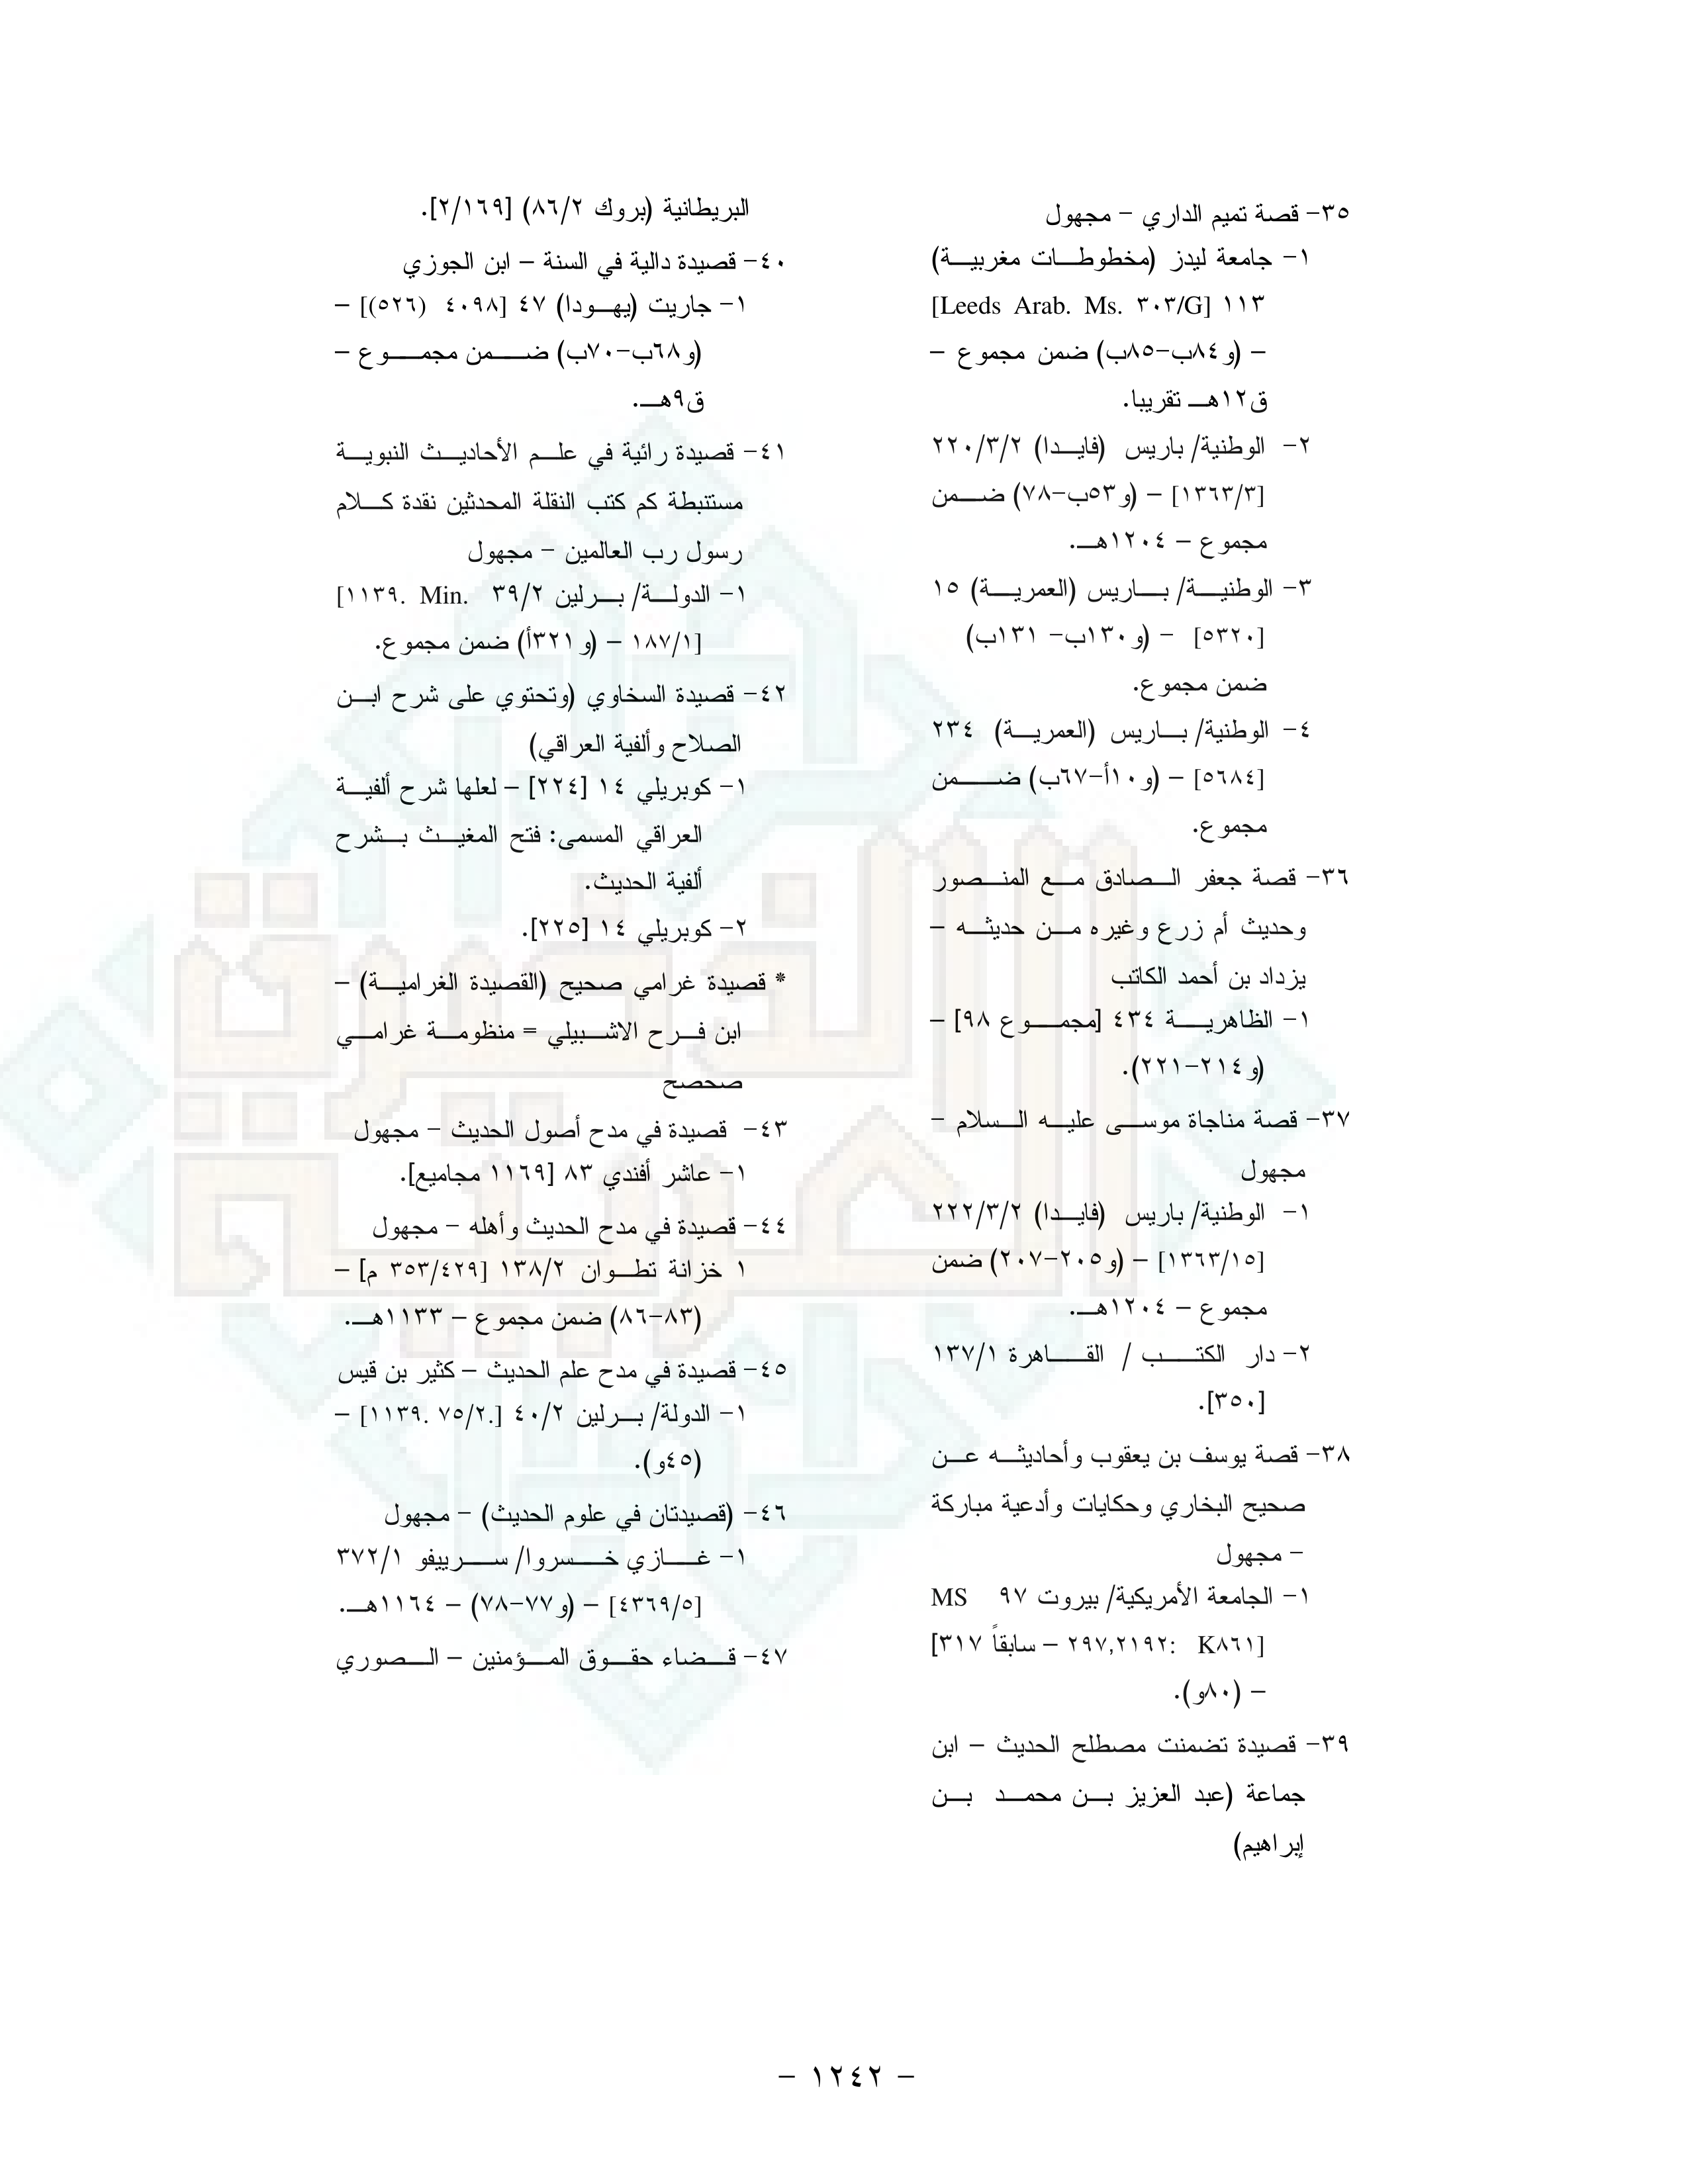 ٣٥- قصة تميم الداري - مجهول
١- جامعة ليدز (مخطوطات مغربية)
١١٣ [Leeds Arab. Ms. ٣٠٣/G]
- (و٨٤ب-٨٥ب) ضمن مجموع -
ق١٢هـ تقريبا.
٢- الوطنية/ باريس (فايدا) ٢٢٠/٣/٢
[١٣٦٣/٣] - (و٥٣ب-٧٨) ضمن
مجموع - ١٢٠٤هـ.
٣- الوطنية/ باريس (العمرية) ١٥
[٥٣٢٠] - (و١٣٠ب- ١٣١ب)
ضمن مجموع.
٤- الوطنية/ باريس (العمرية) ٢٣٤
[٥٦٨٤] - (و١٠أ-٦٧ب) ضمن
مجموع.
٣٦- قصة جعفر الصادق مع المنصور
وحديث أم زرع وغيره من حديثه -
يزداد بن أحمد الكاتب
١- الظاهرية ٤٣٤ [مجموع ٩٨] -
(و٢١٤-٢٢١).
٣٧- قصة مناجاة موسى عليه السلام -
مجهول
١- الوطنية/ باريس (فايدا) ٢٢٢/٣/٢
[١٣٦٣/١٥] - (و٢٠٥-٢٠٧) ضمن
مجموع - ١٢٠٤هـ.
٢- دار الكتب / القاهرة ١٣٧/١
[٣٥٠].
٣٨- قصة يوسف بن يعقوب وأحاديثه عن
صحيح البخاري وحكايات وأدعية مباركة
- مجهول
١- الجامعة الأمريكية/ بيروت ٩٧ MS
[٢٩٧,٢١٩٢: K٨٦١ - سابقاً ٣١٧]
- (٨٠و).
٣٩- قصيدة تضمنت مصطلح الحديث - ابن
جماعة (عبد العزيز بن محمد بن
إبراهيم)
البريطانية (بروك ٨٦/٢) [٢/١٦٩].
٤٠- قصيدة دالية في السنة - ابن الجوزي
١- جاريت (يهودا) ٤٧ [٤٠٩٨ (٥٢٦)] -
(و٦٨ب-٧٠ب) ضمن مجموع -
ق٩هـ.
٤١- قصيدة رائية في علم الأحاديث النبوية
مستنبطة كم كتب النقلة المحدثين نقدة كلام
رسول رب العالمين - مجهول
١- الدولة/ برلين ٣٩/٢ [١١٣٩. Min.
١٨٧/١] - (و٣٢١أ) ضمن مجموع.
٤٢- قصيدة السخاوي (وتحتوي على شرح ابن
الصلاح وألفية العراقي)
١- كوبريلي ١٤ [٢٢٤] - لعلها شرح ألفية
العراقي المسمى: فتح المغيث بشرح
ألفية الحديث.
٢- كوبريلي ١٤ [٢٢٥].
* قصيدة غرامي صحيح (القصيدة الغرامية) -
ابن فرح الاشبيلي = منظومة غرامي
صحصح
٤٣- قصيدة في مدح أصول الحديث - مجهول
١- عاشر أفندي ٨٣ [١١٦٩ مجاميع].
٤٤- قصيدة في مدح الحديث وأهله - مجهول
١ خزانة تطوان ١٣٨/٢ [٣٥٣/٤٢٩ م] -
(٨٣-٨٦) ضمن مجموع - ١١٣٣هـ.
٤٥- قصيدة في مدح علم الحديث - كثير بن قيس
١- الدولة/ برلين ٤٠/٢ [١١٣٩. ٧٥/٢.] -
(٤٥و).
٤٦- (قصيدتان في علوم الحديث) - مجهول
١- غازي خسروا/ سرييفو ٣٧٢/١
[٤٣٦٩/٥] - (و٧٧-٧٨) - ١١٦٤هـ.
٤٧- قضاء حقوق المؤمنين - الصوري
- ١٢٤٢ -